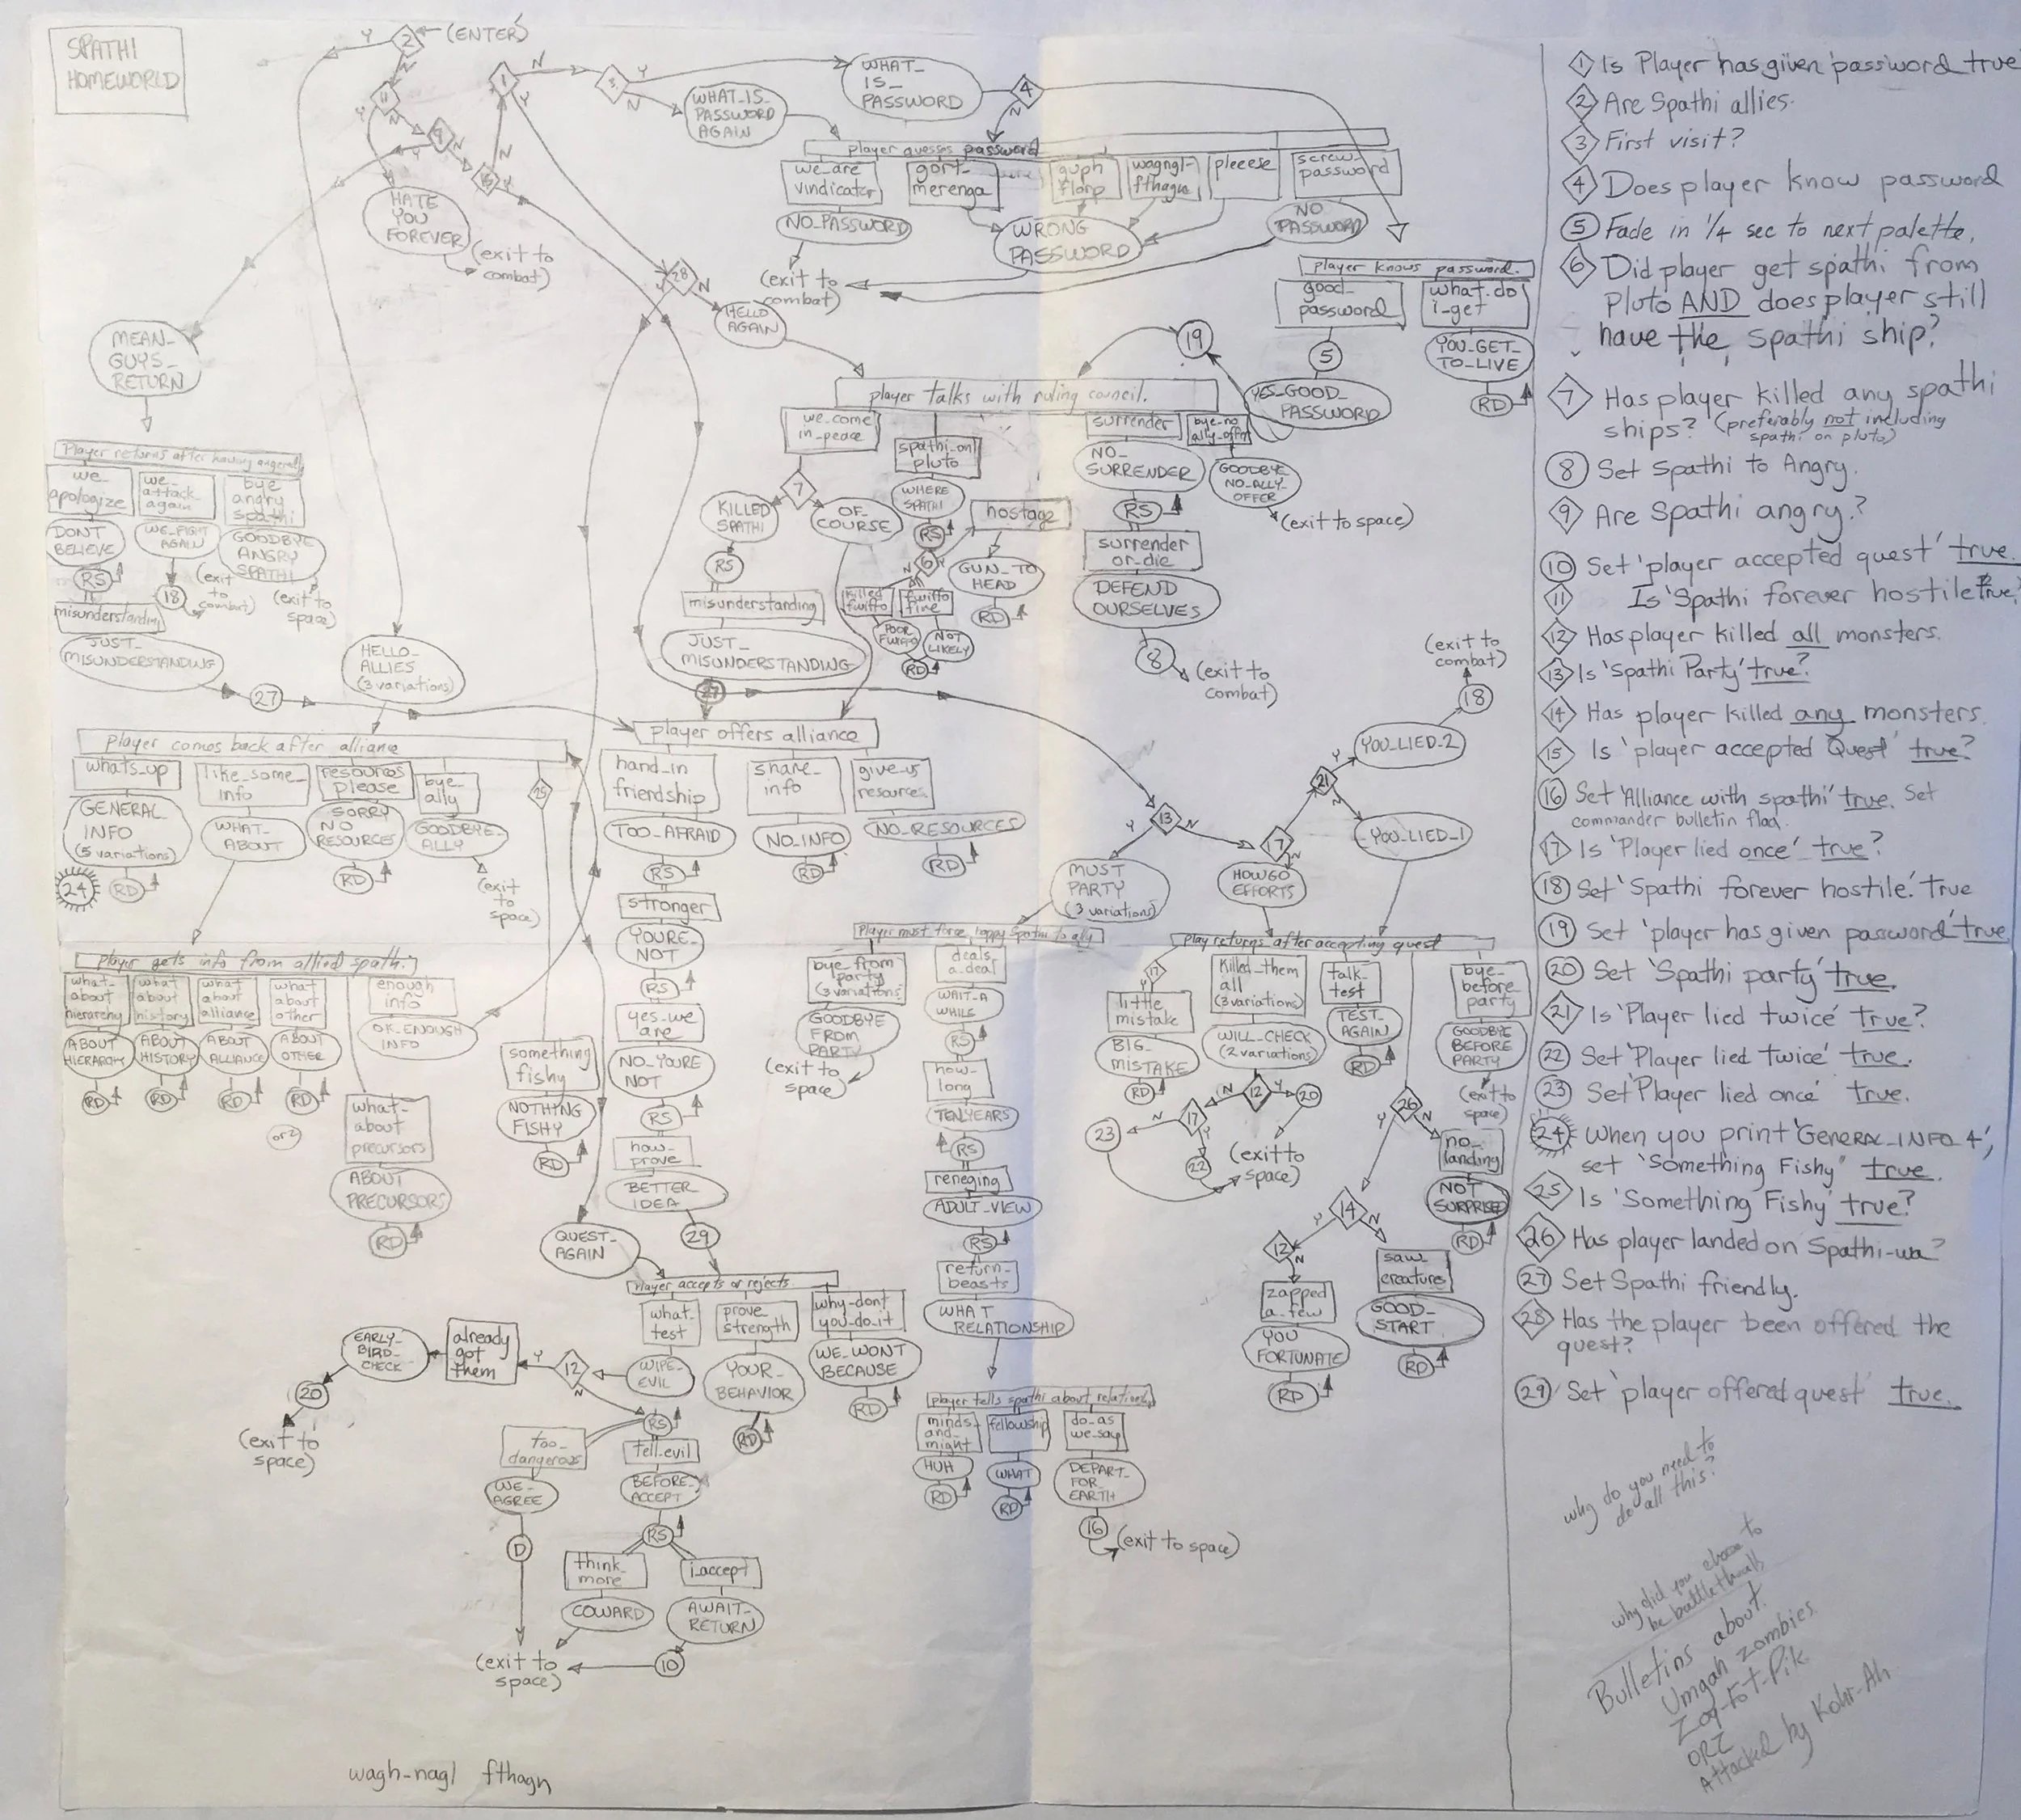 SPATHI
HOMEWORLD
(ENTER)
Y
2
N
11
Y
N
9
Y
N
15
N
Y
1
N
Y
3
Y
N
WHAT_
IS_
PASSWORD
WHAT_IS_
PASSWORD
AGAIN
4
N
player guesses password
we_are
vindicator
gort-
merenga
guph
florp
wagngl-
fthagn
pleeese
screw-
password
NO_PASSWORD
WRONG
PASSWORD
NO
PASSWORD
(exit to
combat)
HATE
YOU
FOREVER
(exit to
combat)
28
Y
N
HELLO
AGAIN
player knows password.
good_
password
what_do
i_get
5
YOU_GET_
TO_LIVE
RD
YES_GOOD_
PASSWORD
19
MEAN_
GUYS_
RETURN
player talks with ruling council.
we_come
in_peace
spathi_on
pluto
surrender
bye_no
ally_offer
7
KILLED
SPATHI
OF_
COURSE
WHERE
SPATHI
RS
hostage
NO_
SURRENDER
GOODBYE
NO_ALLY_
OFFER
(exit to space)
RS
misunderstanding
6
N
Y
GUN_TO
HEAD
RD
killed
fwiffo
fwiffo
fine
POOR
FWIFFO
NOT
LIKELY
RD
RS
surrender
or_die
DEFEND
OURSELVES
8
(exit to
combat)
JUST_
MISUNDERSTANDING
27
Player returns after having angered
we_
apologize
we_
attack_
again
bye
angry
spathi
DON'T
BELIEVE
WE_FIGHT
AGAIN
GOODBYE
ANGRY
SPATHI
RS
18
(exit
to
combat)
(exit to
space)
misunderstanding
JUST_
MISUNDERSTANDING
27
HELLO_
ALLIES
(3 variations)
player comes back after alliance
whats_up
like_some_
info
resources
please
bye_
ally
25
GENERAL_
INFO
(5 variations)
WHAT_
ABOUT
SORRY
NO
RESOURCES
GOODBYE_
ALLY
24
RD
RD
(exit
to
space)
player offers alliance
hand_in
friendship
share_
info
give_us
resources
TOO_AFRAID
NO_INFO
NO_RESOURCES
RS
RD
RD
stronger
YOURE_
NOT
RS
yes_we
are
NO_YOURE
NOT
RS
how_
prove
BETTER
IDEA
29
player gets info from allied spathi
what_
about
hierarchy
what
about
history
what
about
alliance
what
about
other
enough
info
ABOUT
HIERARCHY
ABOUT
HISTORY
ABOUT
ALLIANCE
ABOUT
OTHER
OK_ENOUGH
INFO
RD
RD
RD
RD
or2
what_
about
precursors
ABOUT
PRECURSORS
RD
something
fishy
NOTHING
FISHY
RD
QUEST_
AGAIN
Player accepts or rejects
what_
test
prove
strength
why_dont
you_do_it
WIPE_
EVIL
YOUR_
BEHAVIOR
WE_WONT
BECAUSE
RD
RD
12
Y
N
already
got
them
EARLY_
BIRD_
CHECK
20
(exit to
space)
RS
too_
dangerous
tell_evil
WE_
AGREE
BEFORE_
ACCEPT
D
RS
think_
more
i_accept
COWARD
AWAIT_
RETURN
10
(exit to
space)
13
Y
N
MUST
PARTY
(3 variations)
17
Y
N
HOWGO
EFFORTS
21
Y
N
YOU_LIED_2
18
(exit to
combat)
YOU_LIED_1
Player must force happy Spathi to ally
bye_from
party
(3 variations)
deals_
a_deal
GOODBYE
FROM
PARTY
(exit to
space)
WAIT_A
WHILE
RS
how_
long
TENYEARS
RS
reneging
ADULT_VIEW
RS
return_
beasts
WHAT
RELATIONSHIP
player tells spathi about relationship
minds_
and_
might
fellowship
do_as
we_say
HUH
WHAT
DEPART_
FOR_
EARTH
RD
RD
16
(exit to space)
play returns after accepting quest
17
Y
little
mistake
killed_them
all
(3 variations)
talk_
test
bye_
before_
party
BIG_
MISTAKE
WILL_CHECK
(2 variations)
TEST_
AGAIN
GOODBYE
BEFORE
PARTY
RD
RD
(exit to
space)
12
N
Y
17
N
Y
20
23
22
(exit to
space)
26
Y
N
no_
landing
NOT
SURPRISED
RD
14
Y
N
12
N
saw_
creature
zapped
a_few
GOOD_
START
YOU
FORTUNATE
RD
RD
wagh-nagl fthagn
1 Is Player has given password true
2 Are Spathi allies.
3 First visit?
4 Does player know password
5 Fade in 1/4 sec to next palette.
6 Did player get spathi from
pluto AND does player still
have the spathi ship?
7 Has player killed any spathi
ships? (preferably not including
spathi on pluto)
8 Set Spathi to Angry.
9 Are Spathi angry?
10 Set 'player accepted quest' true.
11 Is 'Spathi forever hostile' true?
12 Has player killed all monsters.
13 Is 'Spathi Party' true?
14 Has player killed any monsters.
15 Is 'player accepted Quest' true?
16 Set 'Alliance with spathi' true. Set
commander bulletin flag.
17 Is 'Player lied once' true?
18 Set 'Spathi forever hostile.' true
19 Set 'player has given password' true
20 Set 'Spathi party' true.
21 Is 'Player lied twice' true?
22 Set 'Player lied twice' true.
23 Set 'Player lied once' true.
24 When you print 'GENERAL_INFO_4',
set 'Something Fishy' true.
25 Is 'Something Fishy' true?
26 Has player landed on Spathi-wa?
27 Set Spathi friendly.
28 Has the player been offered the
quest?
29 Set 'player offered quest' true.
why do you need to
do all this?
why did you choose to
be battle thralls
Bulletins about
Umgah zombies
Zoq-Fot-Pik
ORZ
Attacked by Kohr-Ah